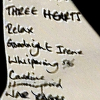 THREE HEARTS
Relax
Goodnight Irene
Whispering
Caroline